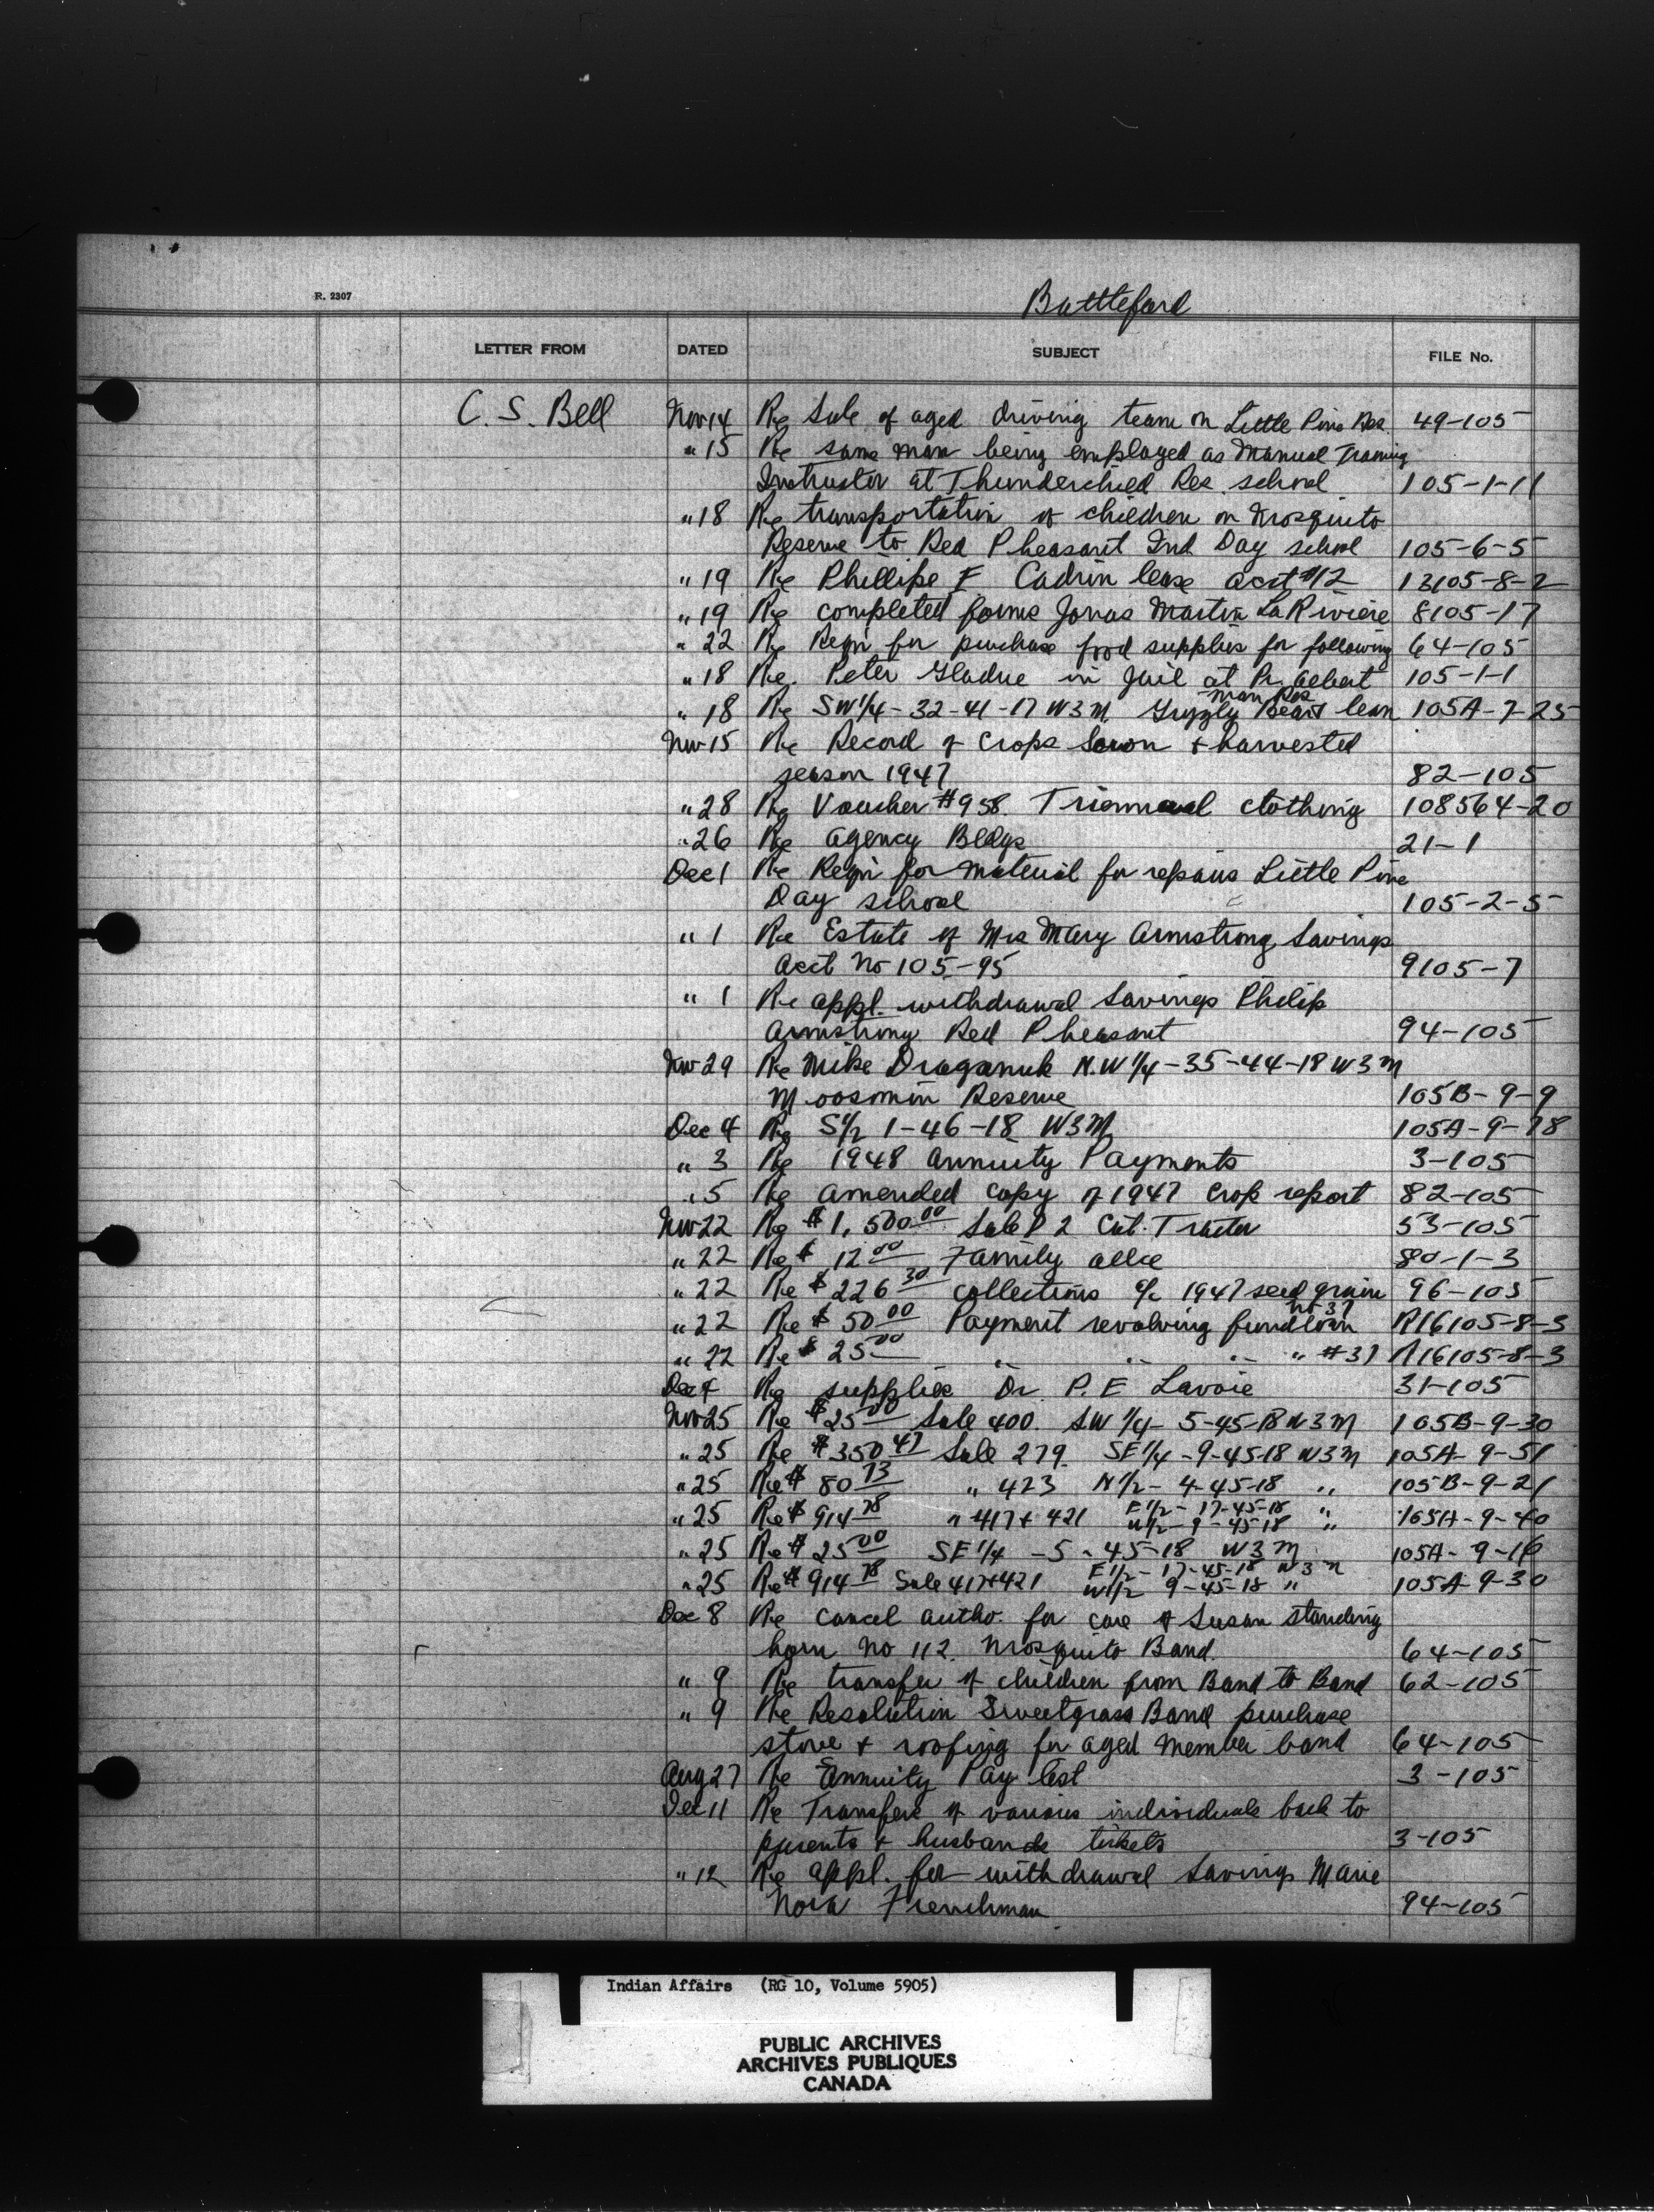 R. 2307
Battleford
LETTER FROM DATED SUBJECT FILE No.
C. S. Bell Nov 14 Re Sale of aged driving team on Little Pine Res. 49-105
" 15 Re same man being employed as Manual Training
Instructor at Thunderchild Res. school 105-1-11
" 18 Re transportation of children on Mosquito
Reserve to Red Pheasant Ind Day school 105-6-5
" 19 Re Phillipe F Cadrin lease acct #12 13105-8-2
" 19 Re completed forms Jonas Martin LaRiviere 8105-17
" 22 Re Reqn for purchase food supplies for following 64-105
" 18 Re. Peter Gladue in Jail at Pr. Albert 105-1-1
" 18 Re SW 1/4-32-41-17 W3M. Grizzly Bears man Res lean 105A-7-25
Nov 15 Re Record of Crops Sown + harvested
season 1947 82-105
" 28 Re Voucher #958. Triennial clothing 108564-20
" 26 Re Agency Bldgs 21-1
Dec 1 Re Reqn for material for repairs Little Pine
Day school 105-2-5
" 1 Re Estate of Mrs Mary Armstrong Savings
Acct No 105-95 9105-7
" 1 Re appl. withdrawal Savings Philip
Armstrong Red Pheasant 94-105
Nov 29 Re Mike Draganuk N.W 1/4-35-44-18 W3M
Moosomin Reserve 105B-9-9
Dec 4 Re S 1/2 1-46-18 W3M 105A-9-18
" 3 Re 1948 Annuity Payments 3-105
" 5 Re amended copy of 1947 Crop report 82-105
Nov 22 Re $1,500.00 Sale D 2 Cat. Tractor 53-105
" 22 Re $ 12.00 Family allce 80-1-3
" 22 Re $226.30 collections a/c 1947 seed grain 96-105
" 22 Re $ 50.00 Payment revolving fund loan no 37 R16105-8-3
" 22 Re $ 25.00 " " " " #37 R16105-8-3
Dec 4 Re supplies Dr. P. E Lavoie 31-105
Nov 25 Re $25.00 Sale 400. SW 1/4- 5-45-18 W3M 105B-9-30
" 25 Re $350.47 Sale 279. SE 1/4-9-45-18 W3M 105A-9-51
" 25 Re $ 80.73 " 423 N 1/2- 4-45-18 " 105B-9-21
" 25 Re $ 914.78 " 417+421 E 1/2- 17-45-18 "
W 1/2- 9-45-18 " 105A-9-40
" 25 Re $ 25.00 SE 1/4 -5-45-18 W3M 105A-9-16
" 25 Re $ 914.78 Sale 417+421 E 1/2- 17-45-18 W3M
W 1/2 9-45-18 " 105A-9-30
Dec 8 Re Cancel autho. for care of Susan Standing
horn No 112. Mosquito Band. 64-105
" 9 Re transfer of children from Band to Band 62-105
" 9 Re Resolution Sweetgrass Band purchase
stove + roofing for aged member band 64-105
Aug 27 Re Annuity Pay list 3-105
Dec 11 Re Transfers of various individuals back to
parents + husbands tickets 3-105
" 12 Re appl. for withdrawal Savings Marie
Nora Frenchman 94-105
Indian Affairs (RG 10, Volume 5905)
PUBLIC ARCHIVES
ARCHIVES PUBLIQUES
CANADA